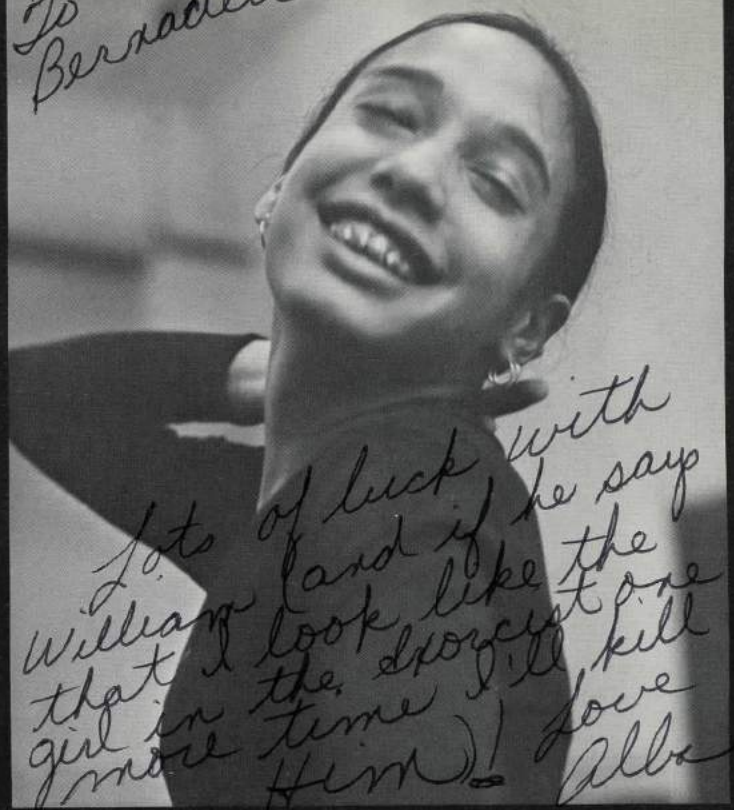 To
Lots of luck with
William (and if he says
that I look like the
girl in the exorcist one
more time I'll kill
Him)! Love
Alba